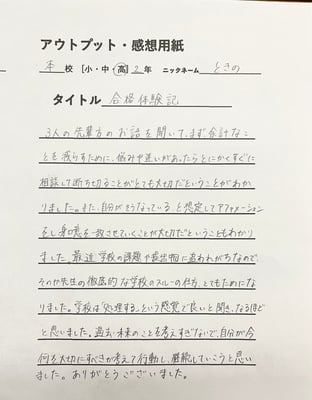 アウトプット・感想用紙
本 校 [小・中・高] 2 年 ニックネーム ときの
タイトル 合格体験記
3人の先輩方のお話を聞いて、まず余計なこ
とを減らすために、悩みや迷いがあったらとにかくすぐに
相談して断ち切ることがとても大切だということがわか
りました。また、自分がそうなっていると想定してアファメーション
をし身に落とさせていくことが大切だということもわかり
ました。最近学校の課題や提出物に追われがちなので、
そのや先生の徹底的な学校のスルーの仕方、とてもためにな
りました。学校は「処理する」という感覚で良いと聞き、なるほど
と思いました。過去・未来のことを考えすぎないで、自分が今
何を大切にすべきか考えて行動し、継続していこうと思い
ました。ありがとうございました。